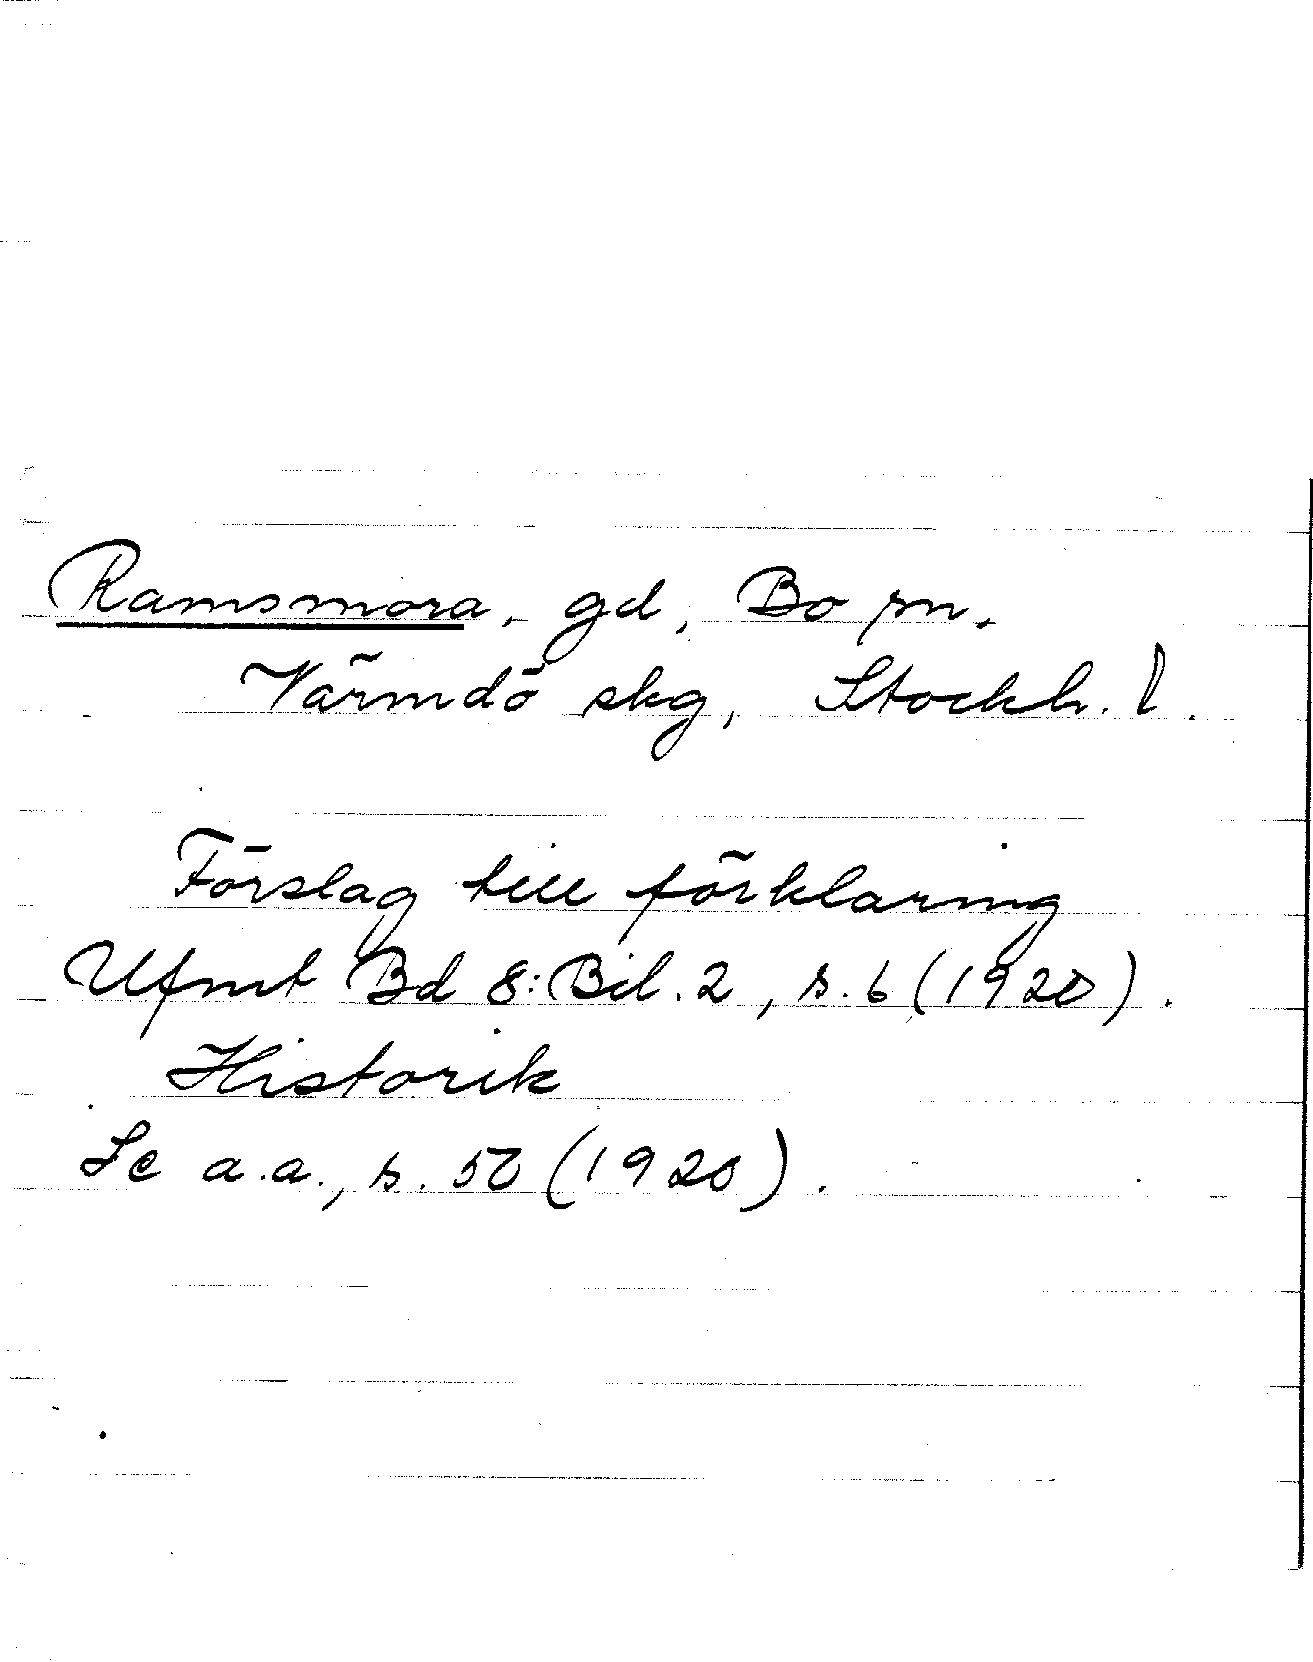 Ramsmora, gd, Bo sn,
Värmdö skg, Stockh. l.
Förslag till förklaring
Ufmt Bd 8: Bil. 2, s. 6 (1920).
Historik
Se a.a., s. 50 (1920).